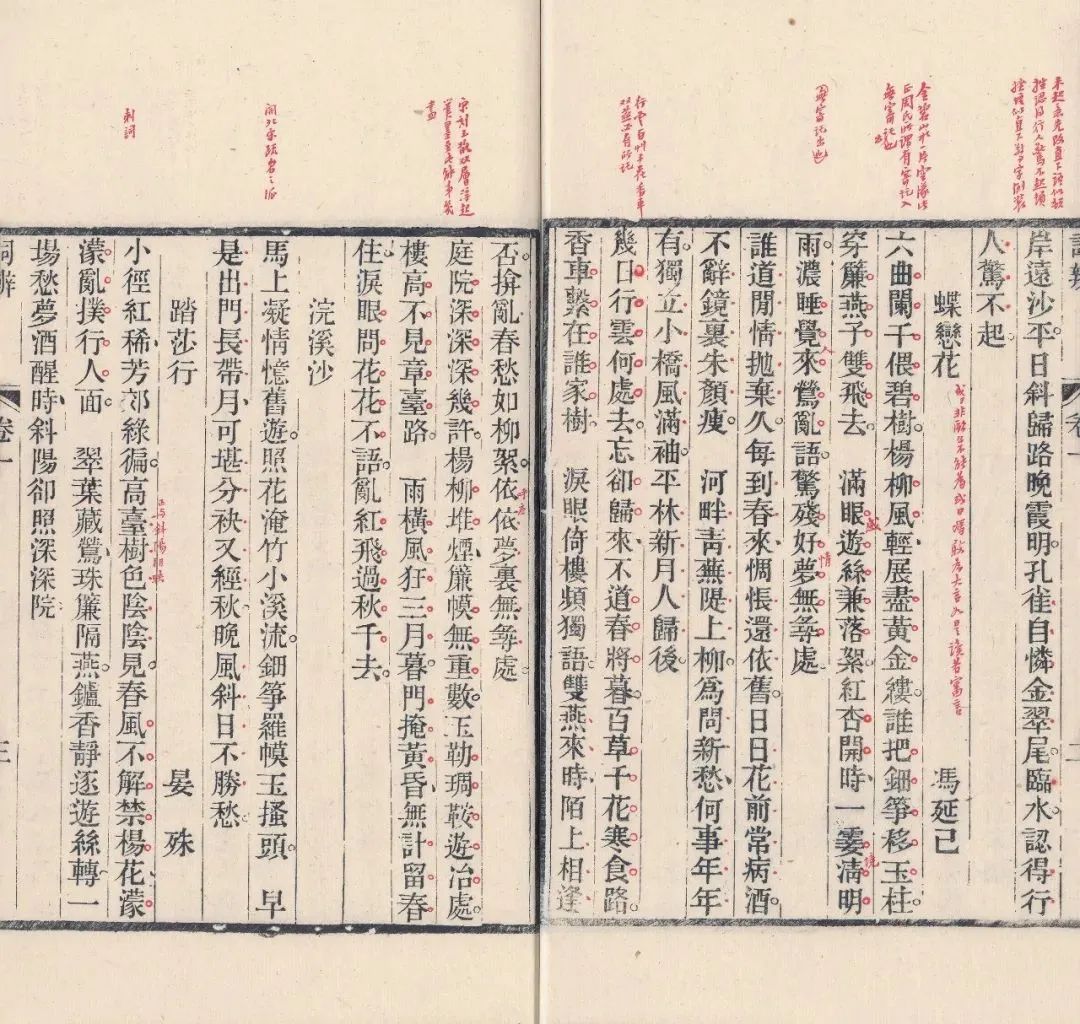 岸遠沙平日斜歸路晚霞明孔雀自憐金翠尾臨水認得行
人驚不起
蝶戀花 馮延己
六曲闌干偎碧樹楊柳風輕展盡黃金縷誰把鈿箏移玉柱
穿簾燕子雙飛去 滿眼遊絲兼落絮紅杏開時一霎淸明
雨濃睡覺來鶯亂語驚殘好夢無尋處
誰道閒情拋棄久每到春來惆悵還依舊日日花前常病酒
不辭鏡裏朱顏瘦 河畔靑蕪隄上柳爲問新愁何事年年
有獨立小橋風滿袖平林新月人歸後
幾日行雲何處去忘卻歸來不道春將暮百草千花寒食路
香車繫在誰家樹 淚眼倚樓頻獨語雙燕來時陌上相逢
否拚亂春愁如柳絮依依夢裏無尋處
庭院深深深幾許楊柳堆煙簾幙無重數玉勒琱鞍遊冶處
樓高不見章臺路 雨橫風狂三月暮門掩黃昏無計留春
住淚眼問花花不語亂紅飛過秋千去
浣溪沙
馬上凝情憶舊遊照花淹竹小溪流鈿箏羅幙玉搔頭 早
是出門長帶月可堪分袂又經秋晚風斜日不勝愁
踏莎行 晏殊
小徑紅稀芳郊綠徧高臺樹色陰陰見春風不解禁楊花濛
濛亂撲行人面 翠葉藏鶯珠簾隔燕鑪香靜逐遊絲轉一
場愁夢酒醒時斜陽卻照深深院
詞辨 卷一 三
金碧山水一片空濛此
正周氏所謂有寄託入
無寄託出也
無寄託出也
行雲百草千花香車
雙燕必有所託
刺詞
正與斜陽相映